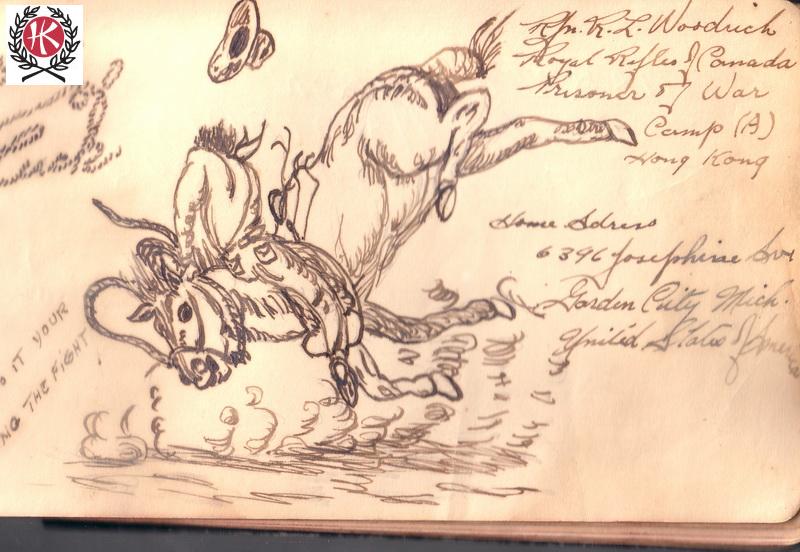 HK
Rfn. R. L. Woodrich
Royal Rifles of Canada
Prisoner of War
Camp (A)
Hong Kong
Home Adress
6396 Josephine Ave
Garden City Mich.
United States of America
IT YOUR
NG THE FIGHT